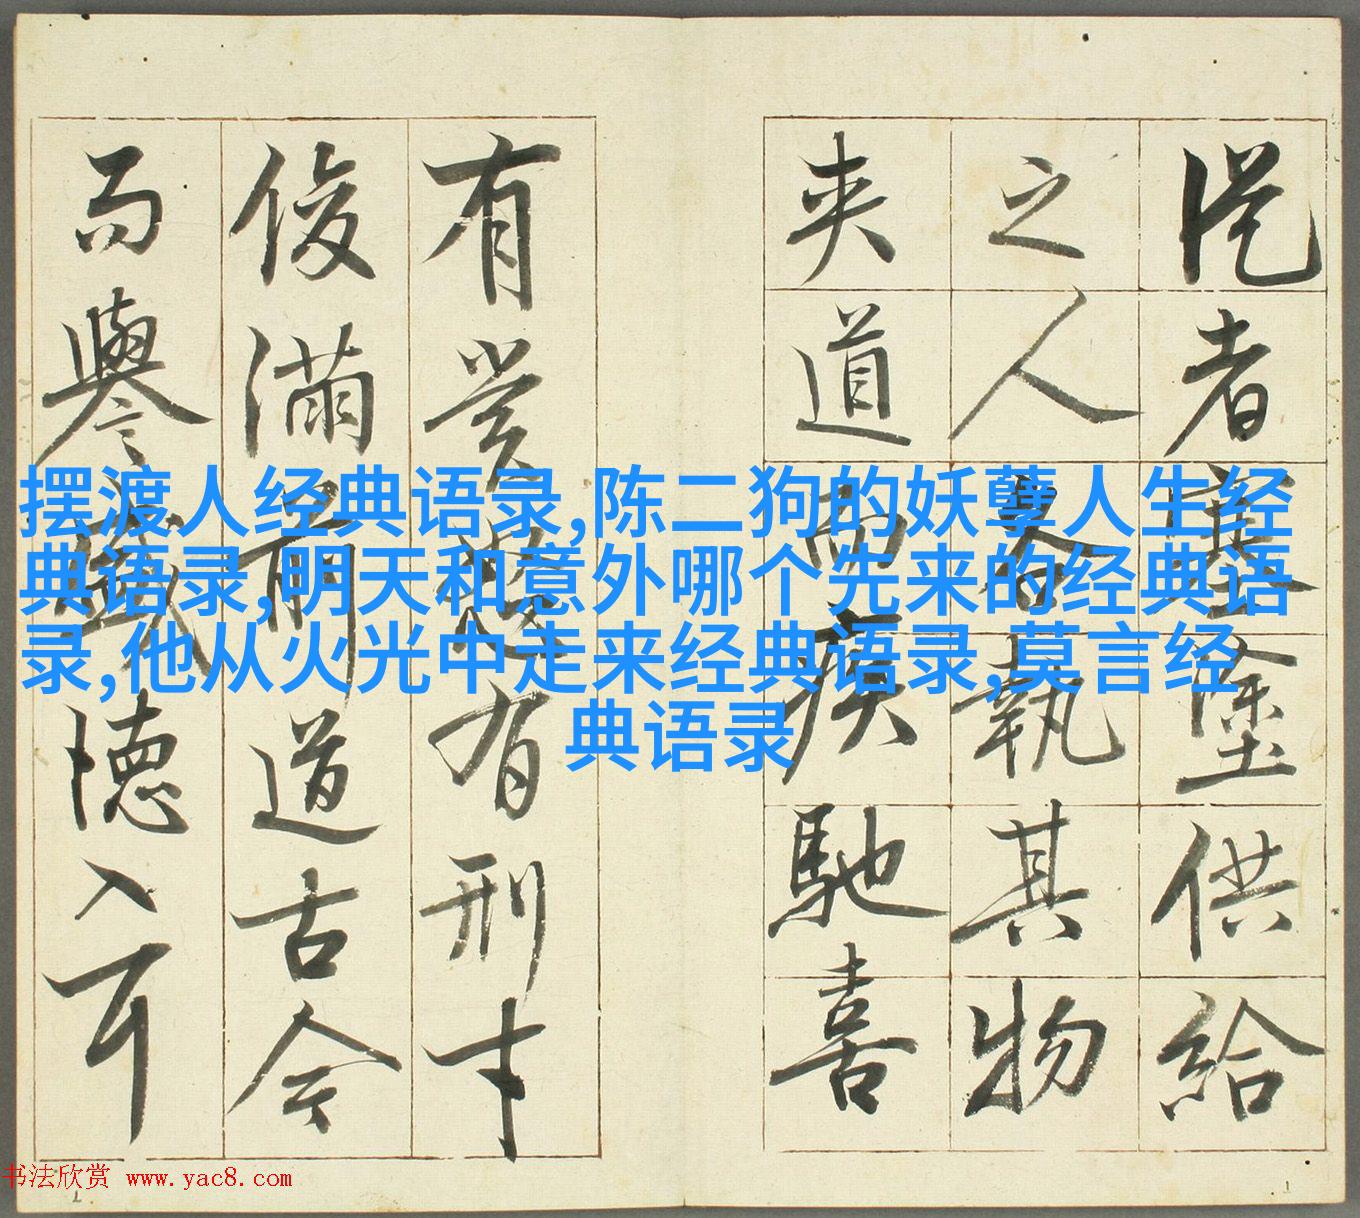 從者塞塗供給
之人各執其物
夾道而疾馳喜
有賞怒有刑才
俊滿前道古今
而譽盛德入耳
摆渡人经典语录,陈二狗的妖孽人生经
典语录,明天和意外哪个先来的经典语
录,他从火光中走来经典语录,莫言经
典语录
书法欣赏 www.yac8.com